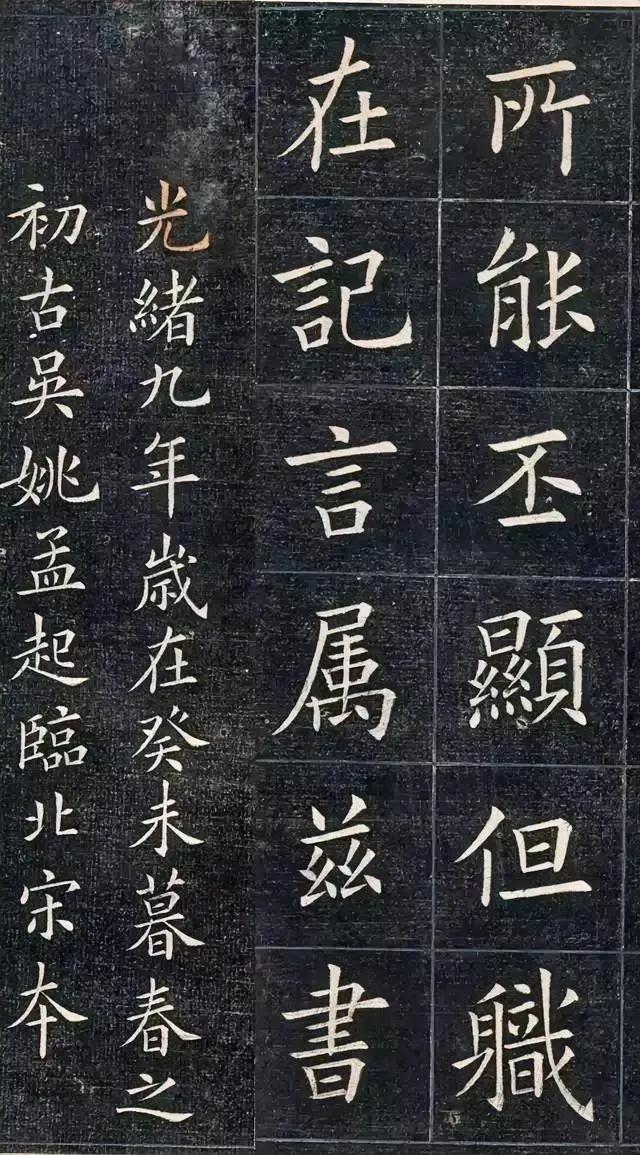 所能丕顯但軄
在記言属兹書
光緒九年歳在癸未暮春之
初古吳姚孟起臨北宋本